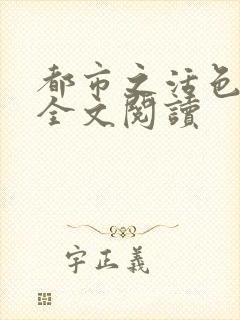 都市之活色
全文閱讀
字正義